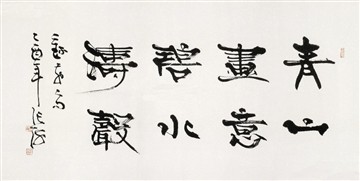 青山
畫意
碧水
濤聲
乙酉年